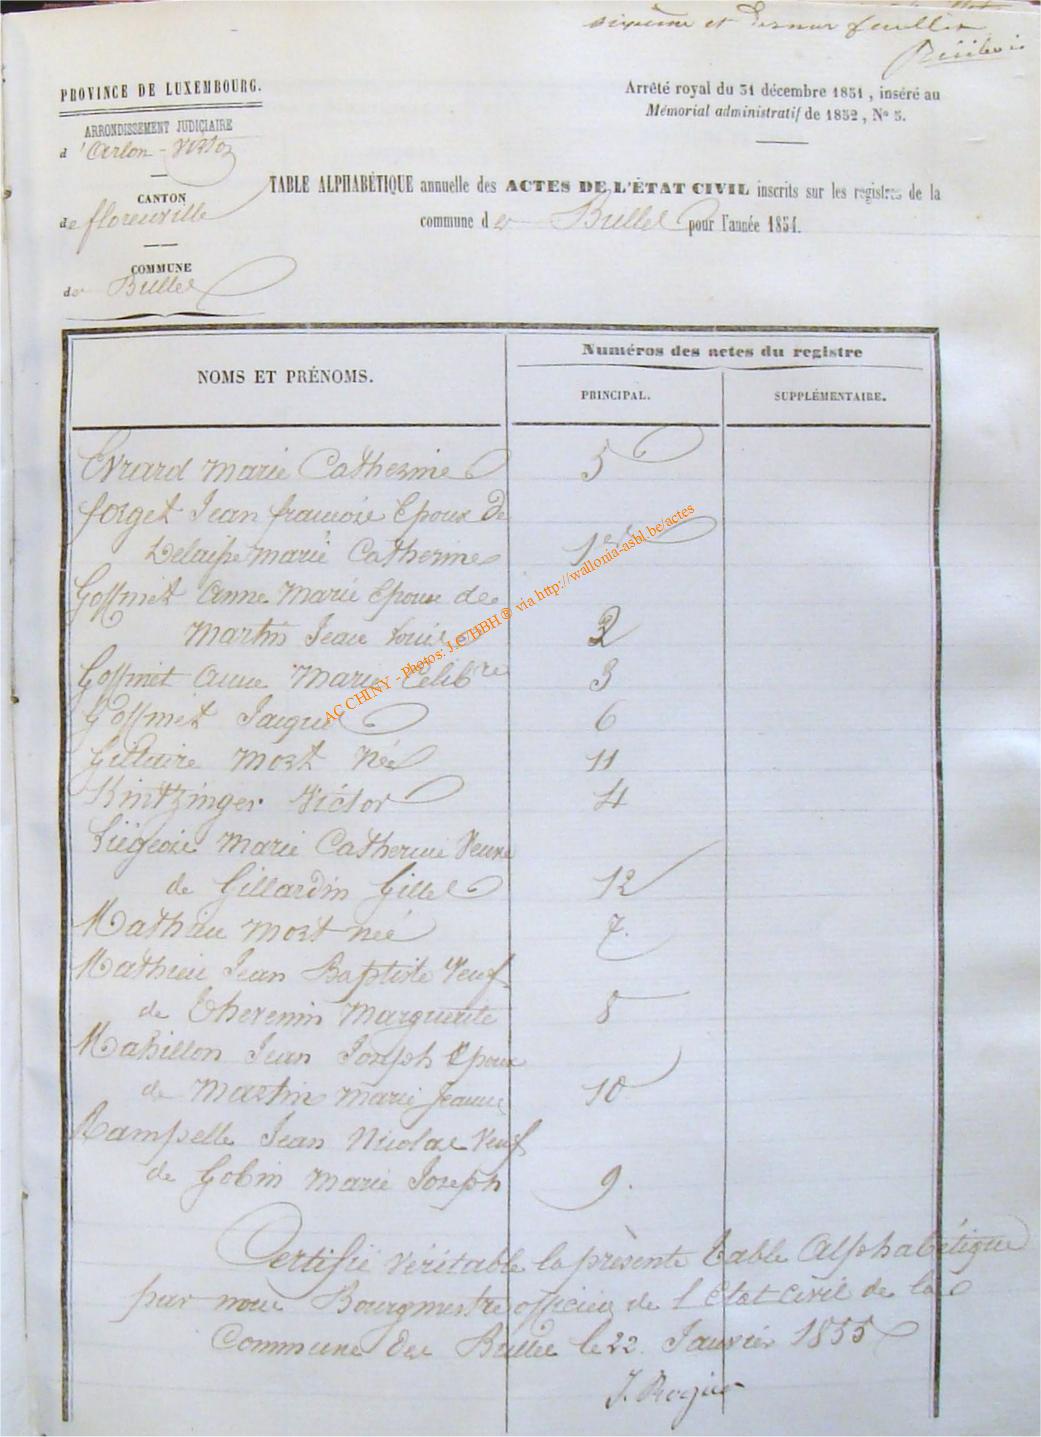 sixième et dernier feuillet
PROVINCE DE LUXEMBOURG.
ARRONDISSEMENT JUDICIAIRE
d'Arlon - Virton
CANTON
de florenville
COMMUNE
de Bulles
Arrêté royal du 31 décembre 1831, inséré au
Mémorial administratif de 1832, N° 3.
TABLE ALPHABÉTIQUE annuelle des ACTES DE L'ÉTAT CIVIL inscrits sur les registres de la
commune de Bulles pour l'année 1854.
NOMS ET PRÉNOMS.
Numéros des actes du registre
PRINCIPAL.
SUPPLÉMENTAIRE.
Evrard Marie Catherine 5
forget Jean françois Epoux de
Marie Catherine 1er
Goffinet Anne Marie Epouse de
Martin Jean Louis 2
Goffinet Anne Marie Célibre 3
Goffinet Jacques 6
Gillaire Mort Née 11
Kintzinger Victor 4
Liégeois Marie Catherine Veuve
de Gillardin Gilles 12
Mathieu Mort née 7.
Mathieu Jean Baptiste Veuf
de Thevenin Marguerite 8
Mahillon Jean Joseph Epoux
de Martin Marie Jeanne 10
Rampelle Jean Nicolas Veuf
de Gobin Marie Joseph 9.
Certifié véritable la présente Table Alphabétique
par nous Bourgmestre officier de l'Etat civil de la
Commune de Bulles le 22 Janvier 1855
AC CHINY - Photos: J.C HBH ® via http://wallonia-asbl.be/actes